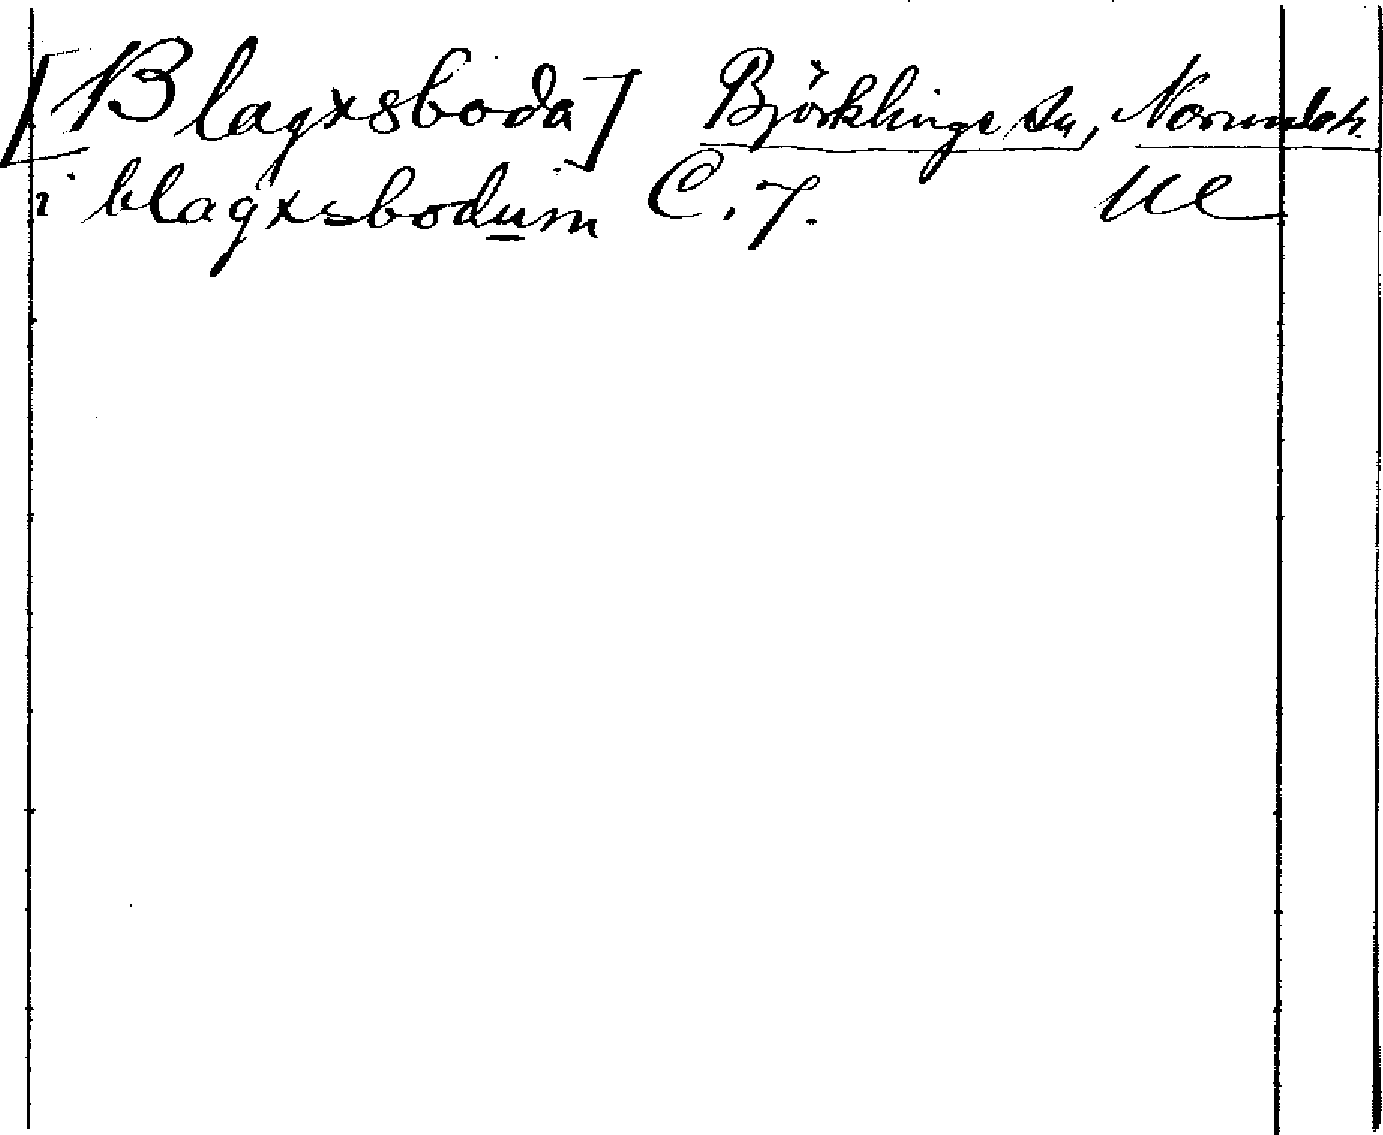 [Blagxsboda] Björklinge sn, Norunda h.
i blagxsbodum C. 7. Ue